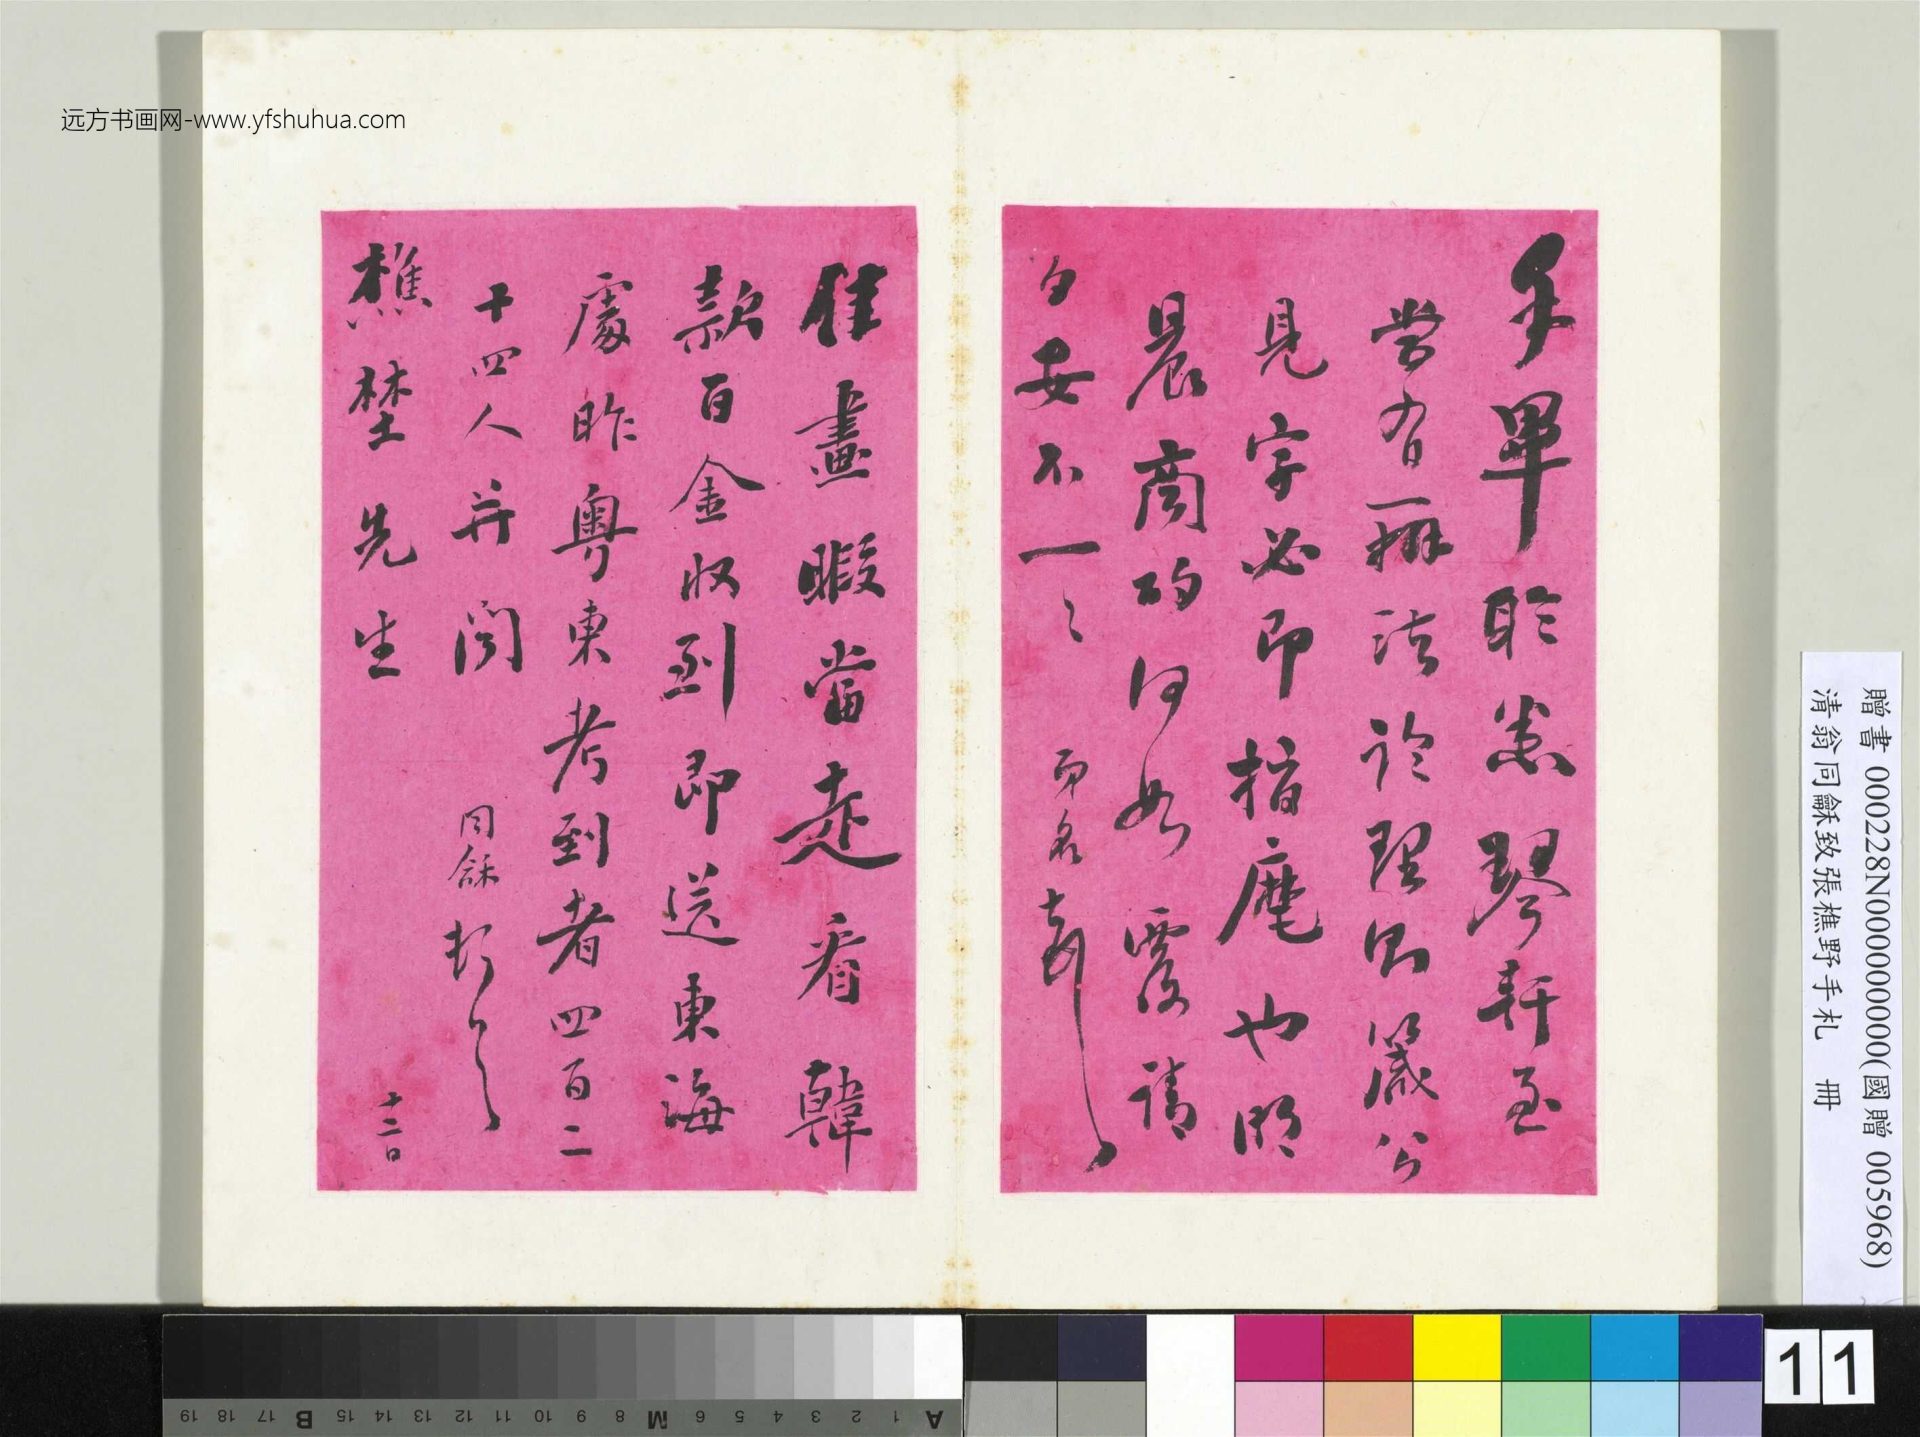 远方书画网-www.yfshuhua.com
手畢聆悉琴軒至
當有辦法論理則箴公
見字必即指麾也明
晨商酌何如覆請
夕安不一一
兩名
佳畫暇當走看韓
款百金收到即送東海
處昨粵東考到者四百二
十四人并聞
同龢頓
樵埜先生
十二日
贈書 000228N000000000(國贈 005968)
清翁同龢致張樵野手札 冊
11
A 1 2 3 4 5 6 M 8 9 10 11 12 13 14 15 B 17 18 19